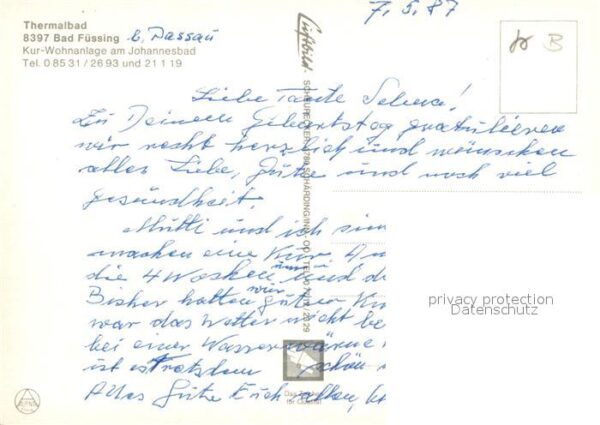 Thermalbad
8397 Bad Füssing b. Passau
Kur-Wohnanlage am Johannesbad
Tel. 0 85 31 / 26 93 und 21 1 19
7.5.87
Luftbild
B
Liebe Tante Selma!
Zu Deinem Geburtstag gratulieren
wir recht herzlich und wünschen
alles Liebe, Gute und noch viel
Gesundheit.
Mutti und ich sin
machen eine Kur.
die 4 Wochen und
Bisher hatten wir guten
war das Wetter nicht be
bei einer Wasserwärme
ist es trotzdem schön
Alles Gute Euch allen,
privacy protection
Datenschutz